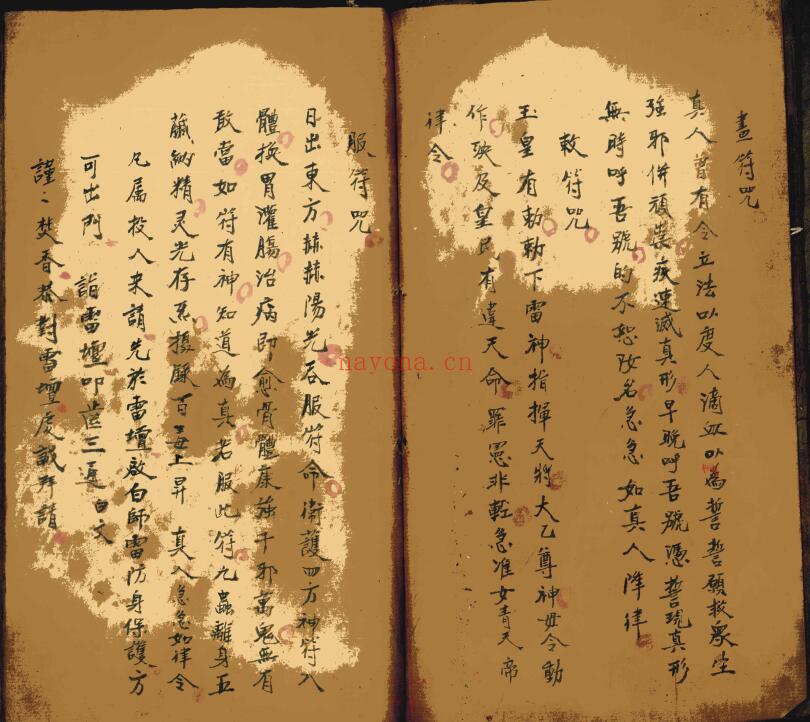 畫符咒
真人曾有令立法以度人滴血以為誓誓願救眾生
強邪併頑祟疾速滅真形早晚呼吾號憑誓現真形
無時呼吾號的不恕汝名急急如真人降律
敕符咒
玉皇有勅勅下雷神指揮天將大乙尊神毋令動
作殃及皇民有違天命罪憲非輕急准女青天帝
律令
服符咒
日出東方赫赫陽光吞服符命衛護四方神符入
體換胃灌腸治病即愈骨體康強千邪萬鬼無有
敢當如符有神知道為真若服此符九蟲離身五
臟納精灵光存 攝 百 上昇 真人急急如律令
凡属投人来請先於雷壇啟白師雷防身保護方
可出門 詣雷壇叩齒三通 白文
謹〻焚香恭對雷壇虔誠拜請
nayona.cn